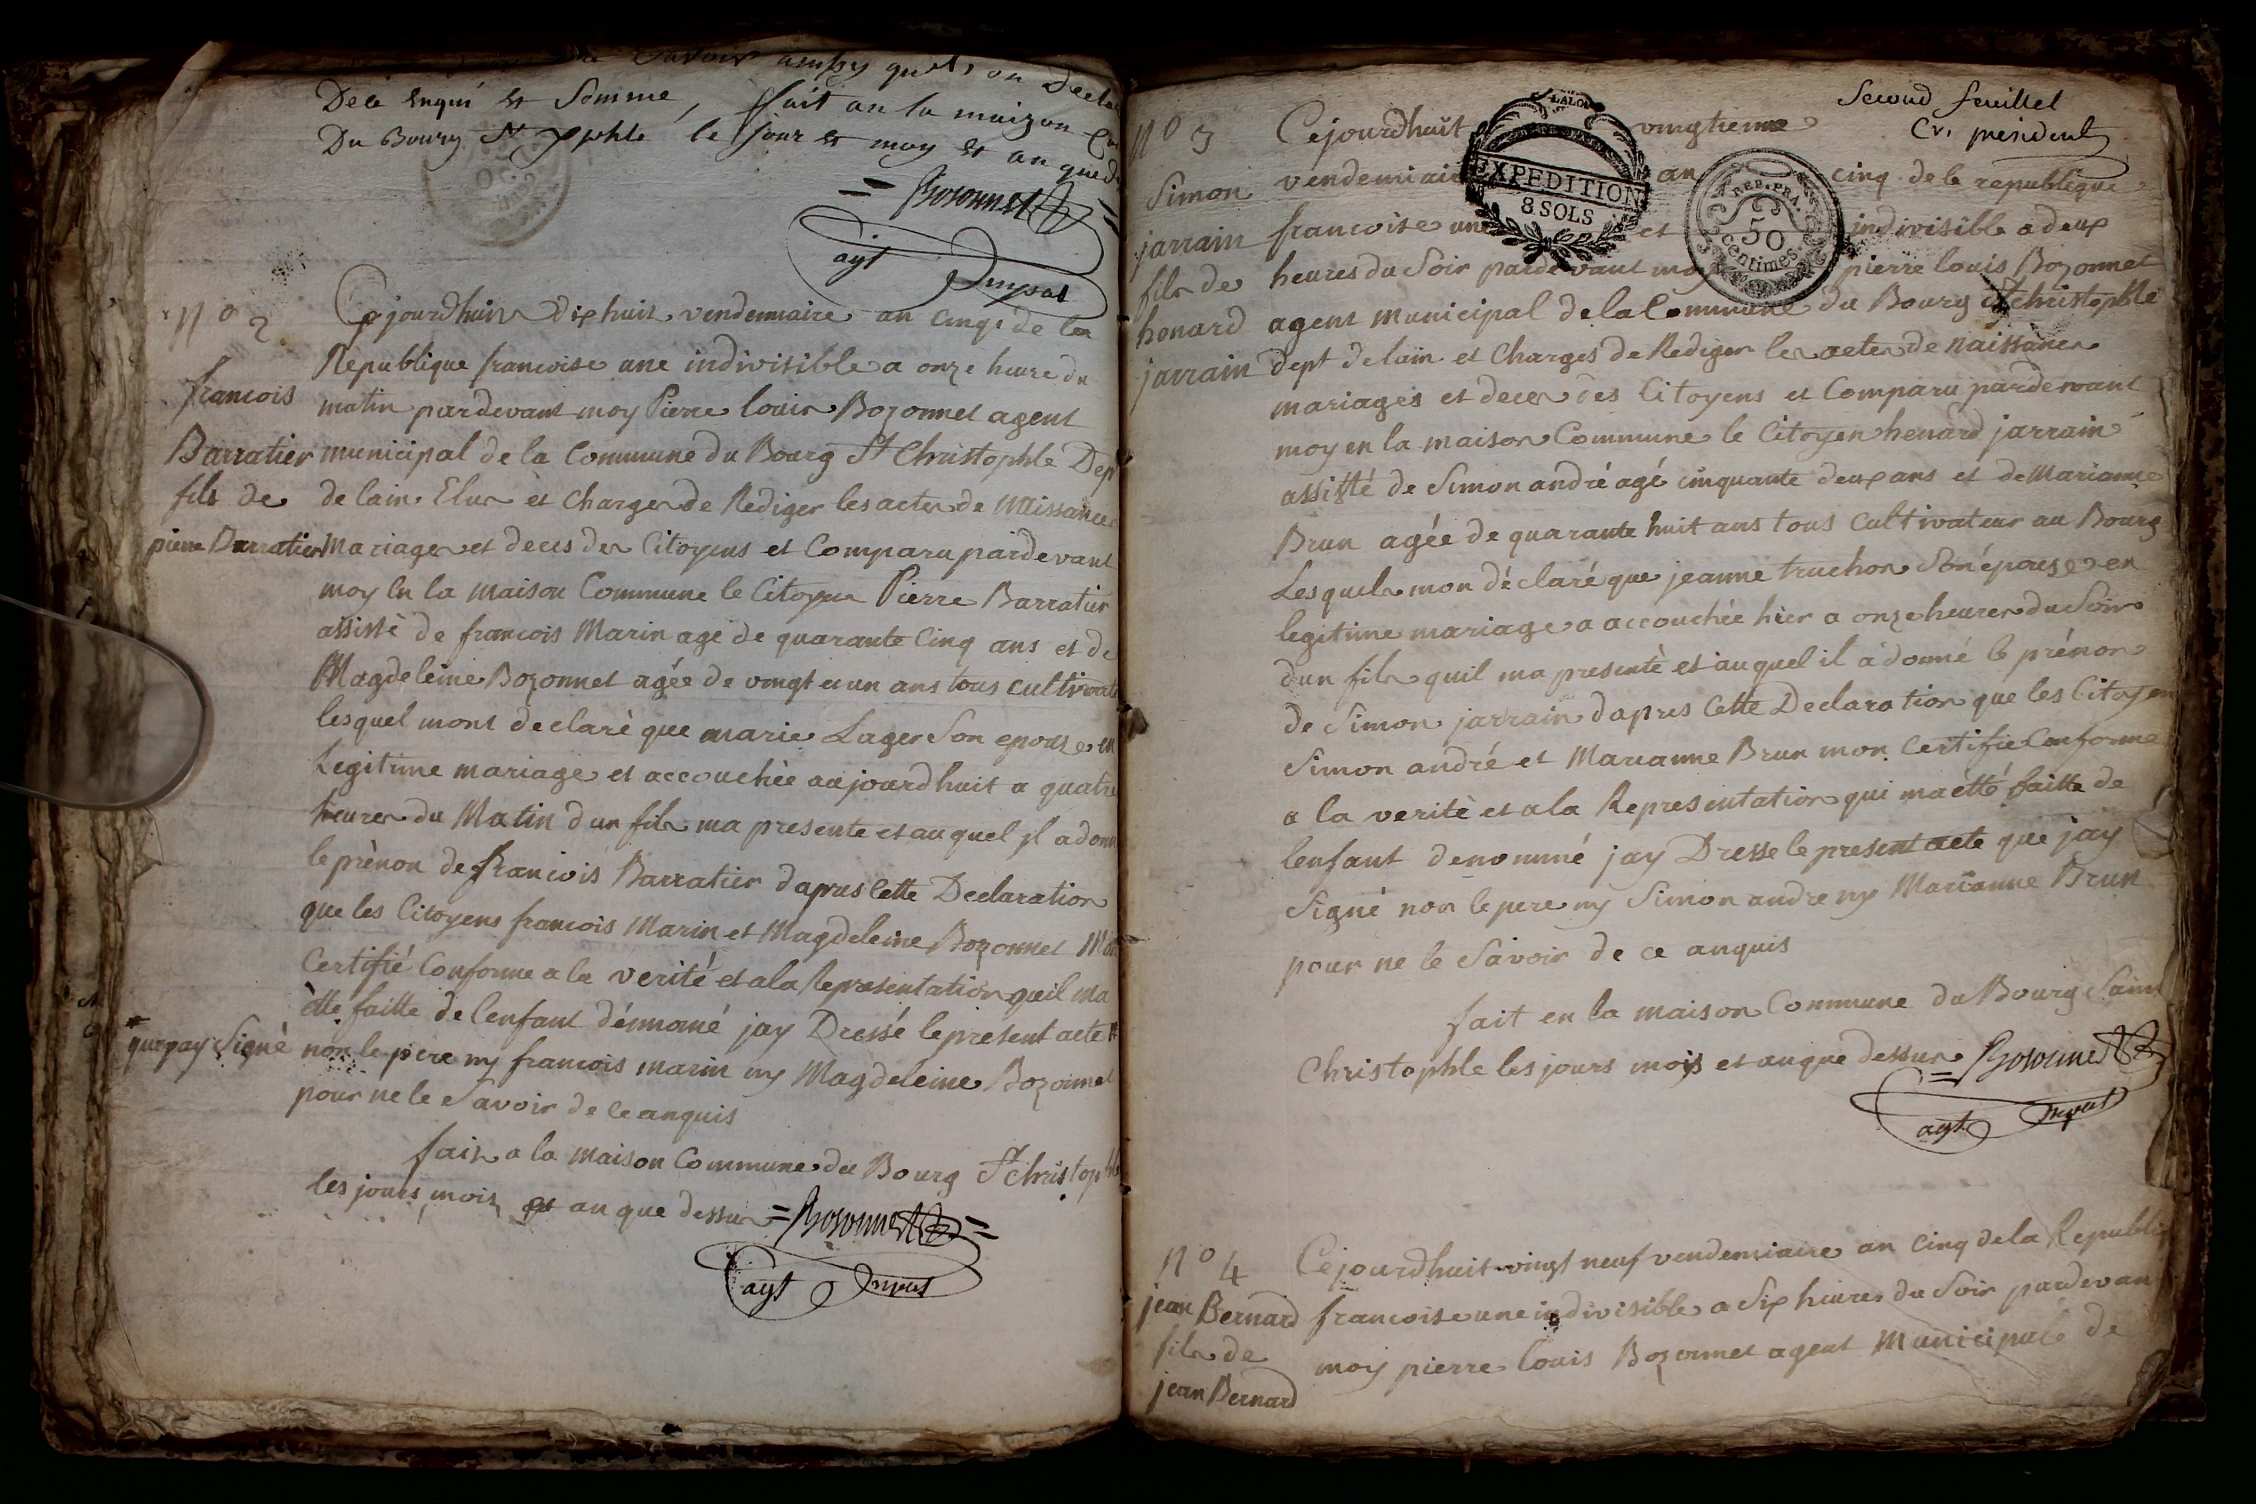 Savoir
De ce Enqui et Sommé, fait an la maizon
Du Bourg St Xphle le jour et moy et an que
= Bozonnet =
agt Mupal
N° 2
françois
Barratier
fils de
pierre Barratier
Cejourdhuit dixhuit vendemiaire an cinq de la
Republique francoise une indivisible a onze heure du
matin pardevant moy Pierre louis Bozonnet agent
municipal de la Commune du Bourg St Christophle Dep
de lain Elu et Charger de Rediger les actes de Naissances
Mariages et deces des Citoyens et Comparu pardevant
moy En la Maison Commune le Citoyen Pierre Barratier
assisté de francois Marin age de quarante Cinq ans et de
Magdeleine Bozonnet agée de vingt et un ans tous cultivate
lesquel mont declaré que marie Lager Son epouze en
Legitime mariage et accouchée aujourdhuit a quatre
heures du Matin dun fils ma presente et auquel yl a donn
le prénon de francois Barratier dapres Cette Declaration
que les Citoyens francois Marin et Magdeleine Bozonnet Mon
Certifié Conforme a la verité et a la Representation quil ma
été faitte de lenfant dénnomé jay Dressé le present acte #
# que jay Signé
non le pere ny francois marin ny Magdeleine Bozonnet
pour ne le Savoir de ce anquis
fait a la maison Commune du Bourg St Christophle
les jours, mois et an que dessus = Bozonnet =
agt Mupal
Second feuillet
Cr. président
LALO
EXPEDITION
8 SOLS
DEP. PRA.
50
centimes
N° 3
Simon
jarrain
fils de
henard
jarrain
Cejourdhuit vingtieme
vendemiair an cinq de la republique
francoise une et indivisible a deux
heures du Soir pardevant moy pierre louis Bozonnet
agent municipal de la Commune du Bourg St christophle
dept de lain et Charges de Rediger les actes de naissances
mariages et deces des Citoyens et Comparu pardevant
moy en la maison Commune le Citoyen henard jarrain
assisté de Simon andré agé cinquante deux ans et de Marianne
Brun agée de quarante huit ans tous Cultivateur au Bourg
Lesquels mon déclaré que jeanne truchon Son épouse en
legitime mariage a accouchée hier a onze heures du Soir
dun fils quil ma presenté et auquel il a donné le prénon
de Simon jarrain dapres Cette Declaration que les Citoyen
Simon andré et Marianne Brun mon Certifie Conforme
a la verité et a la Representation qui ma étté faitte de
lenfant denommé jay Dresse le present acte que jay
Signé non le pere ny Simon andre ny Marianne Brun
pour ne le Savoir de ce anquis
fait en la maison Commune du Bourg Saint
Christophle les jours mois et an que dessus = Bozonnet
agt Mupal
N° 4
jean Bernard
fils de
jean Bernard
Cejourdhuit vingt neuf vendemiaire an cinq de la Republi
francoise une indivisible a Six heures du Soir pardevan
moy pierre louis Bozonnet agent Municipale de